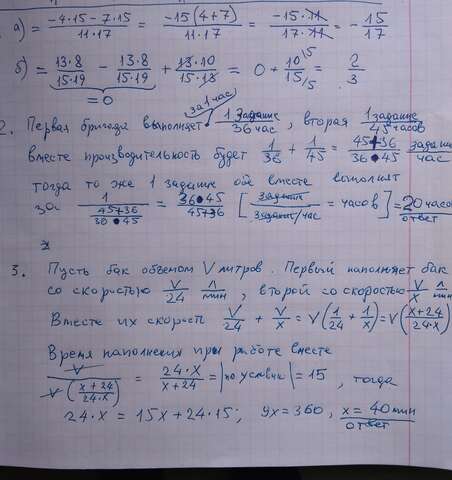 а) = (-4·15 - 7·15)/(11·17) = (-15(4+7))/(11·17) = (-15·11)/(17·11) = -15/17
б) = (13·8)/(15·19) - (13·8)/(15·19) + (13·10)/(15·13) = 0 + 10/15 /5 /5 = 2/3
= 0
за 1 час
2. Первая бригада выполняет 1 задание/36 час, вторая 1 задание/45 часов
вместе производительность будет 1/36 + 1/45 = (45+36)/(36·45) задание/час
тогда то же 1 задание обе вместе выполнят
за 1/((45+36)/(36·45)) = (36·45)/(45+36) [задание/(задание/час) = часов] = 20 часов
ответ
3. Пусть бак объемом V литров. Первый наполняет бак
со скоростью V/24 л/мин, второй со скоростью V/x л/мин
Вместе их скорость V/24 + V/x = V(1/24 + 1/x) = V((x+24)/(24·x))
Время наполнения при работе вместе
V/(V((x+24)/(24·x))) = (24·x)/(x+24) = |по условию| = 15, тогда
24·x = 15x + 24·15; 9x = 360, x = 40 мин
ответ